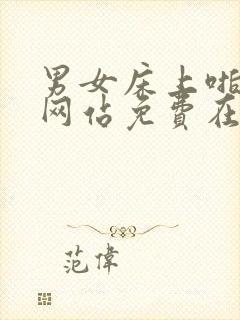 男女床上啪
网站免費在
范偉